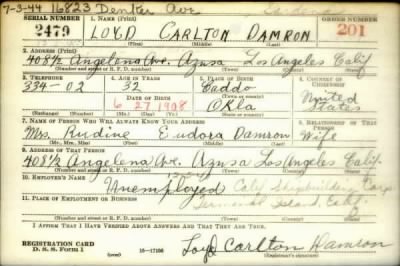 7-3-44 16823 Denker Ave Gardena
SERIAL NUMBER 1. NAME (Print) ORDER NUMBER
2479 LOYD CARLTON DAMRON 201
(First) (Middle) (Last)
2. ADDRESS (Print)
408½ Angelena Ave. Azusa Los Angeles Calif
(Number and street or R. F. D. number) (Town) (County) (State)
3. TELEPHONE 4. AGE IN YEARS 5. PLACE OF BIRTH 6. COUNTRY OF CITIZENSHIP
334-02 32 Caddo United States
DATE OF BIRTH (Town or county)
6 27 1908 Okla
(Mo.) (Day) (Yr.) (State or country)
7. NAME OF PERSON WHO WILL ALWAYS KNOW YOUR ADDRESS 8. RELATIONSHIP OF THAT PERSON
Mrs. Rudine Eudora Damron Wife
(Mr., Mrs., Miss) (First) (Middle) (Last)
9. ADDRESS OF THAT PERSON
408½ Angelena Ave. Azusa Los Angeles Calif.
(Number and street or R. F. D. number) (Town) (County) (State)
10. EMPLOYER'S NAME
Unemployed Calif Shipbuilding Corp
11. PLACE OF EMPLOYMENT OR BUSINESS
Terminal Island, Calif
(Number and street or R. F. D. number) (Town) (County) (State)
I AFFIRM THAT I HAVE VERIFIED ABOVE ANSWERS AND THAT THEY ARE TRUE.
REGISTRATION CARD
D. S. S. Form 1 16-17105 Loyd Carlton Damron
(Registrant's signature)